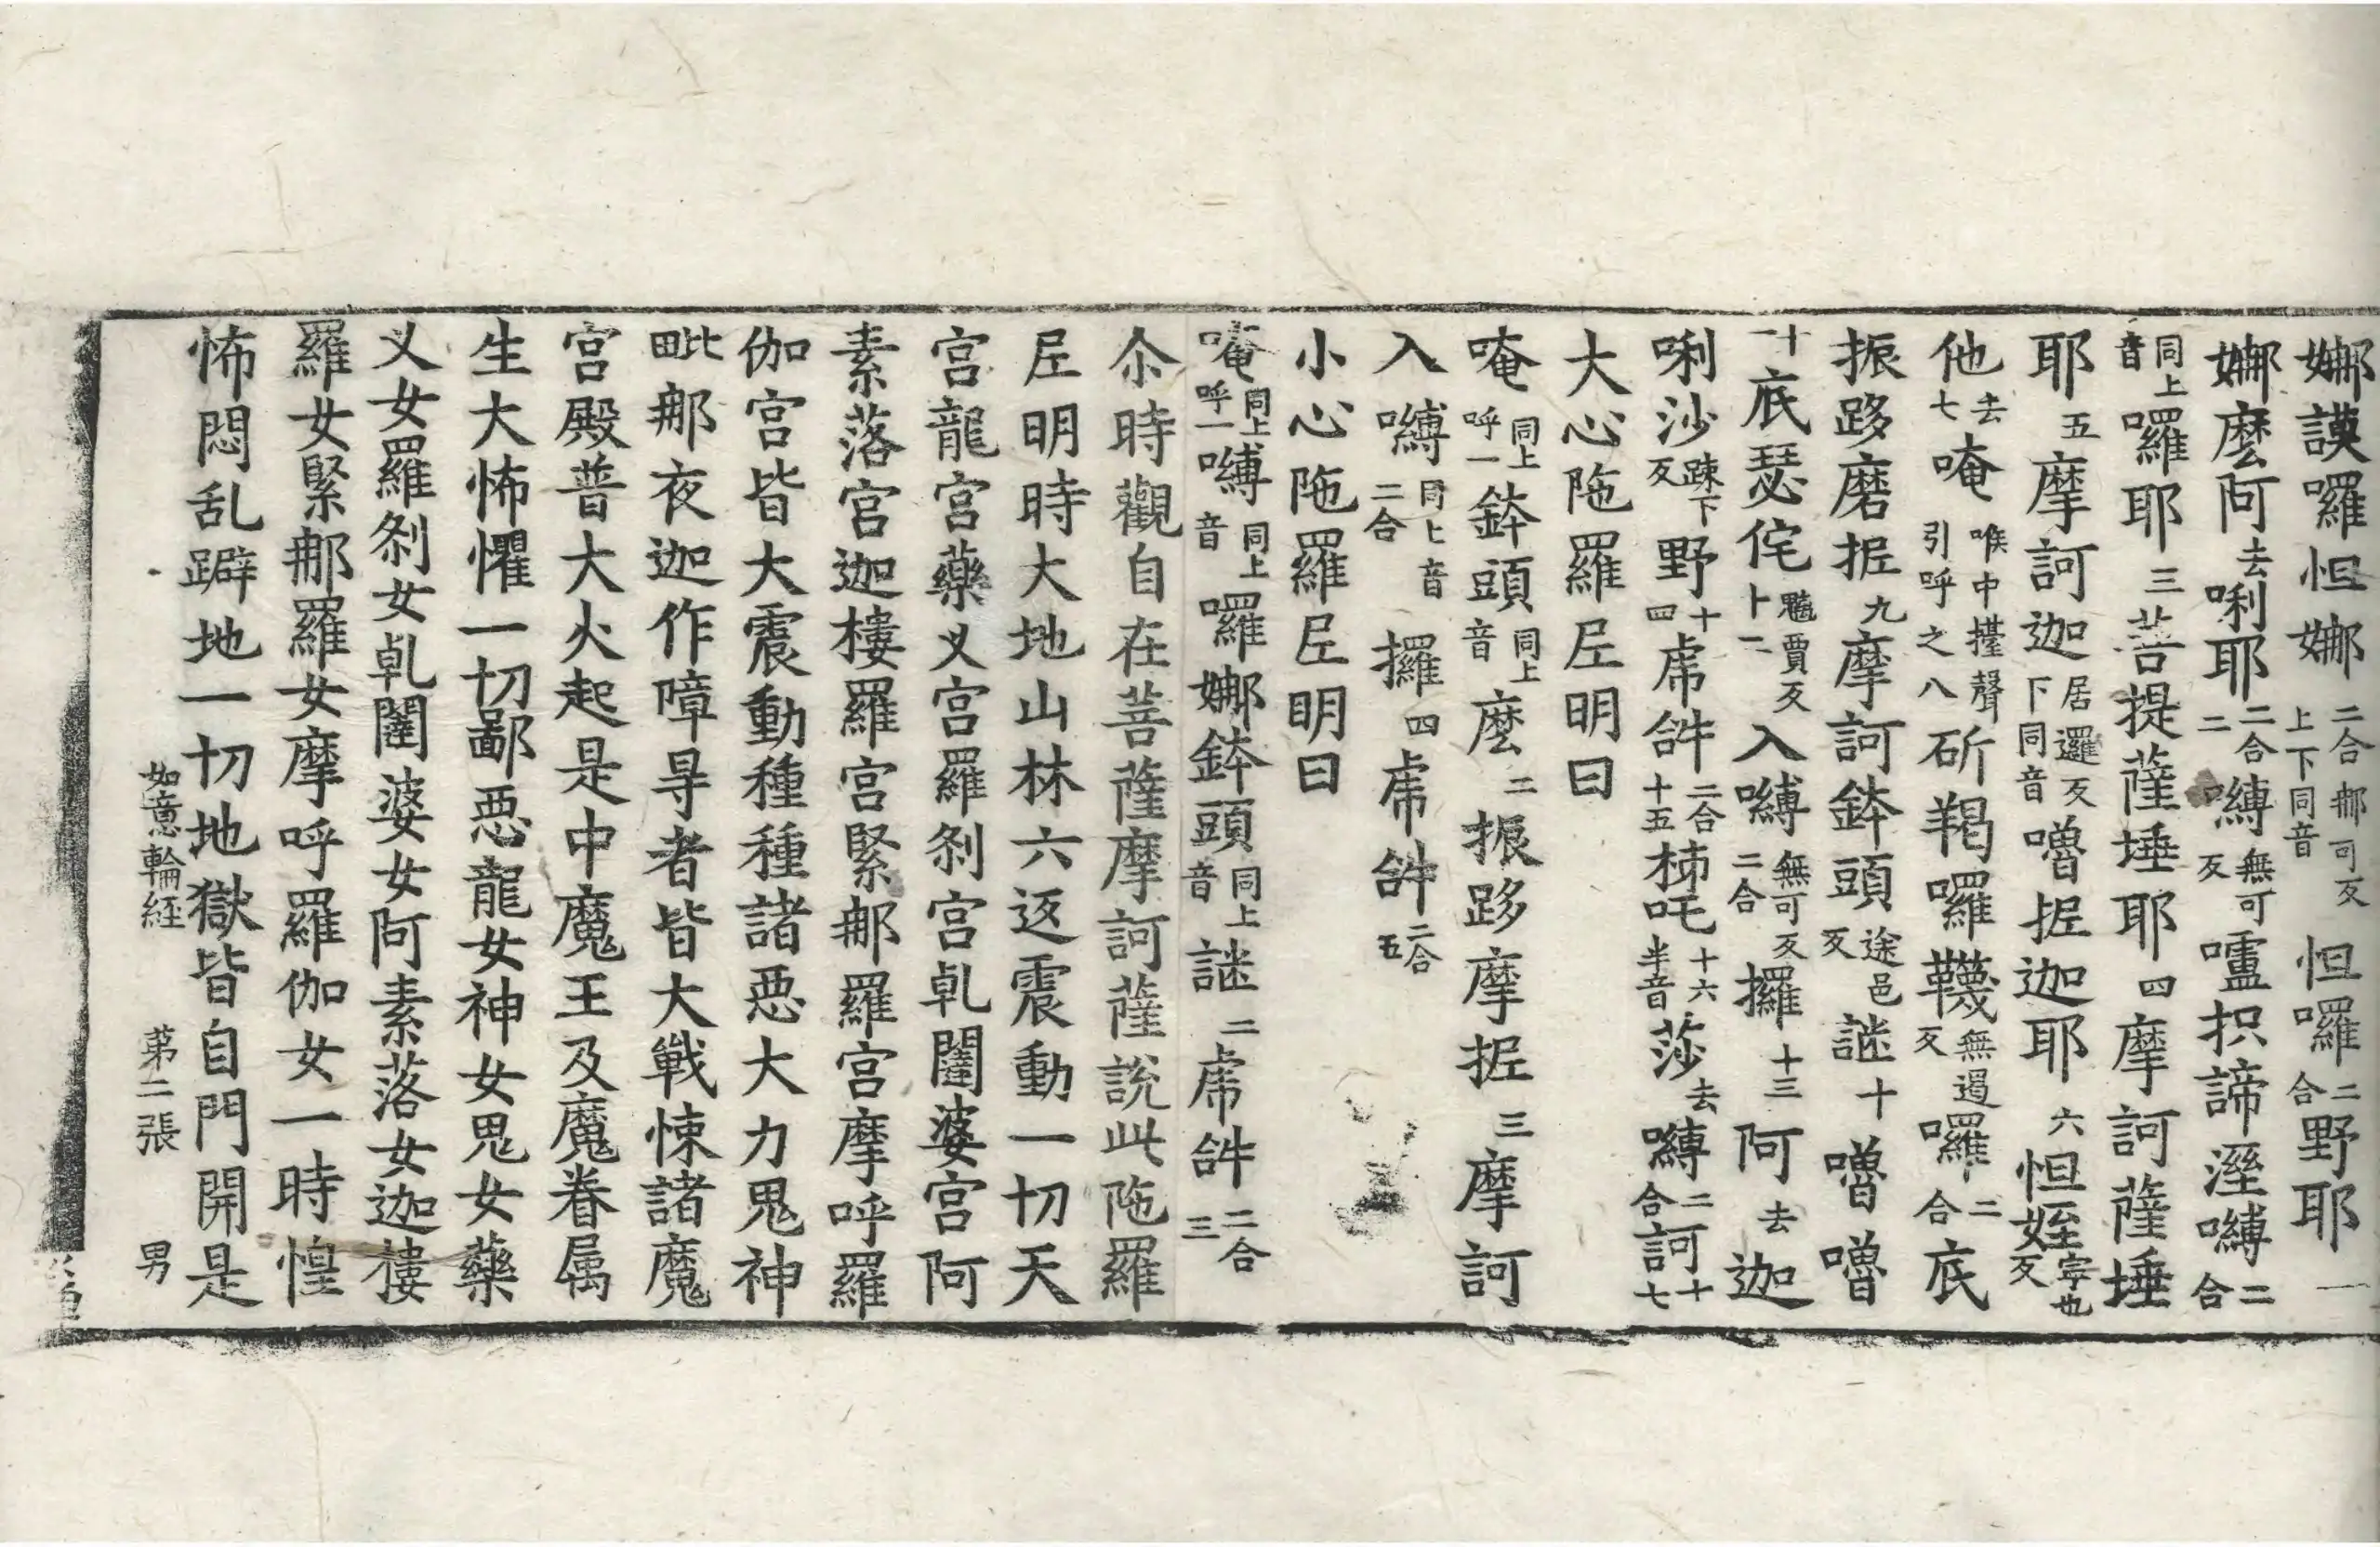 娜謨囉怛娜二合娜可反上下同音怛囉二合野耶一
娜麼阿去唎耶二合二嚩無可反嚧枳諦溼嚩二合
同上音囉耶三菩提薩埵耶四摩訶薩埵
耶五摩訶迦居邏反下同音嚕抳迦耶六怛姪寧也反
他去七唵喉中擡聲引呼之八斫羯囉韈無遏反囉二合底
振跢磨抳九摩訶鉢頭途邑反謎十嚕嚕
十一底瑟侘魑賈反十二入嚩無可反二合攞十三阿去迦
唎沙疎下反野十四虎𤙖二合十五柿吒十六半音莎去嚩二合訶十七
大心陁羅𡰱明曰
唵同上呼一鉢頭同上音麼二振跢摩抳三摩訶
入嚩同上音二合攞四虎𤙖二合五
小心陁羅𡰱明曰
唵同上呼一嚩同上音囉娜鉢頭同上音謎二虎𤙖二合三
尒時觀自在菩薩摩訶薩說此陁羅
𡰱明時大地山林六返震動一切天
宮龍宮藥义宮羅刹宮乹闥婆宮阿
素落宮迦樓羅宮緊那羅宮摩呼羅
伽宮皆大震動種種諸惡大力鬼神
毗那夜迦作障㝵者皆大戰悚諸魔
宮殿普大火起是中魔王及魔眷属
生大怖懼一切鄙惡龍女神女鬼女藥
义女羅刹女乹闥婆女阿素落女迦樓
羅女緊那羅女摩呼羅伽女一時惶
怖悶乱躃地一切地獄皆自門開是
如意輪経 第二張 男